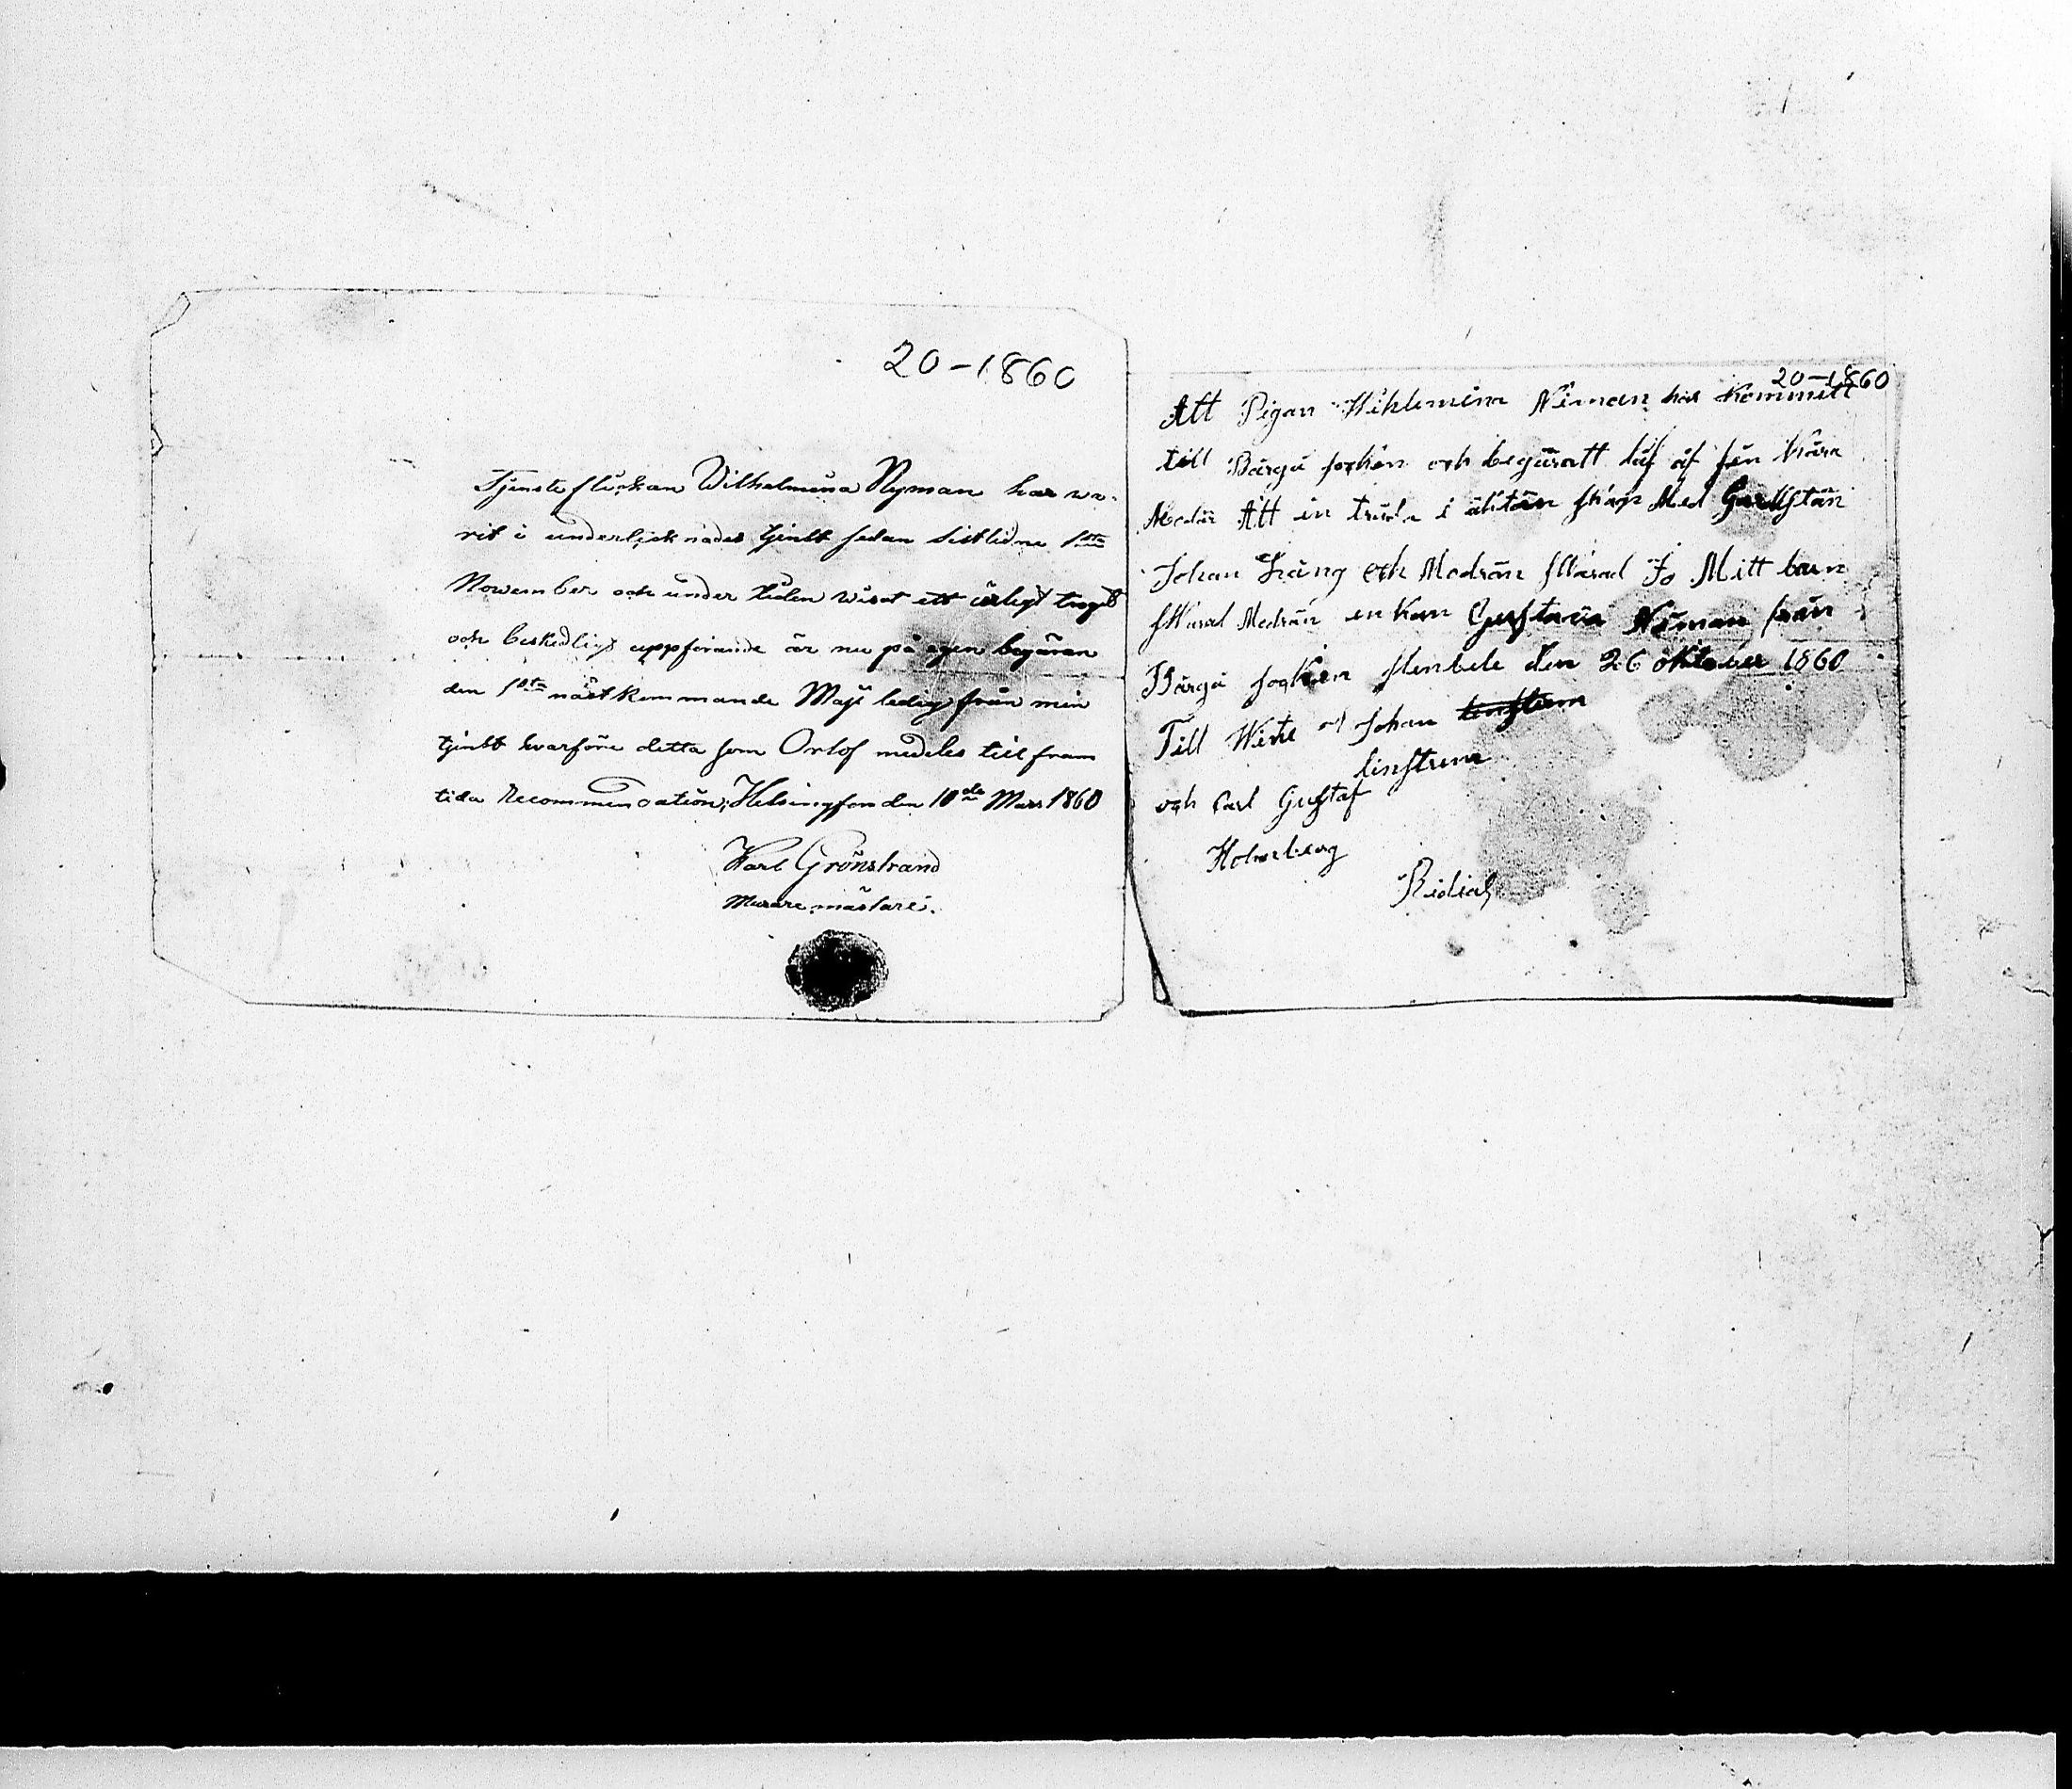 20-1860
Tjensteflickan Wilhelmina Nyman har wa-
rit i undertecknades tjenst sedan sistlidne 1sta
November och under tiden wisat ett ärligt troget
och beskedligt uppförande är nu på egen begäran
den 1sta nästkommande Maji ledig från min
tjenst hvarföre detta som Orlof medeles till fram
tida Recommendation; Helsingfors den 10de Mars 1860
Karl Grönstrand
Muraremästare.
20-1860
Att Pigan Wihlemina Niman har Kommitt
till Bårgå sockén och begäratt låf af sin kära
Moder Att in träda i äktän skap Med Gardistän
Johan Kräng och Modrän swarad Jo Mitt barn
swarad Modrän enkan Gustava Niman från
Bårgå sockien stenbele den 26 oktober 1860
Till Witne af Johan linstrem
linstrem
och Carl Gustaf
Holmberg